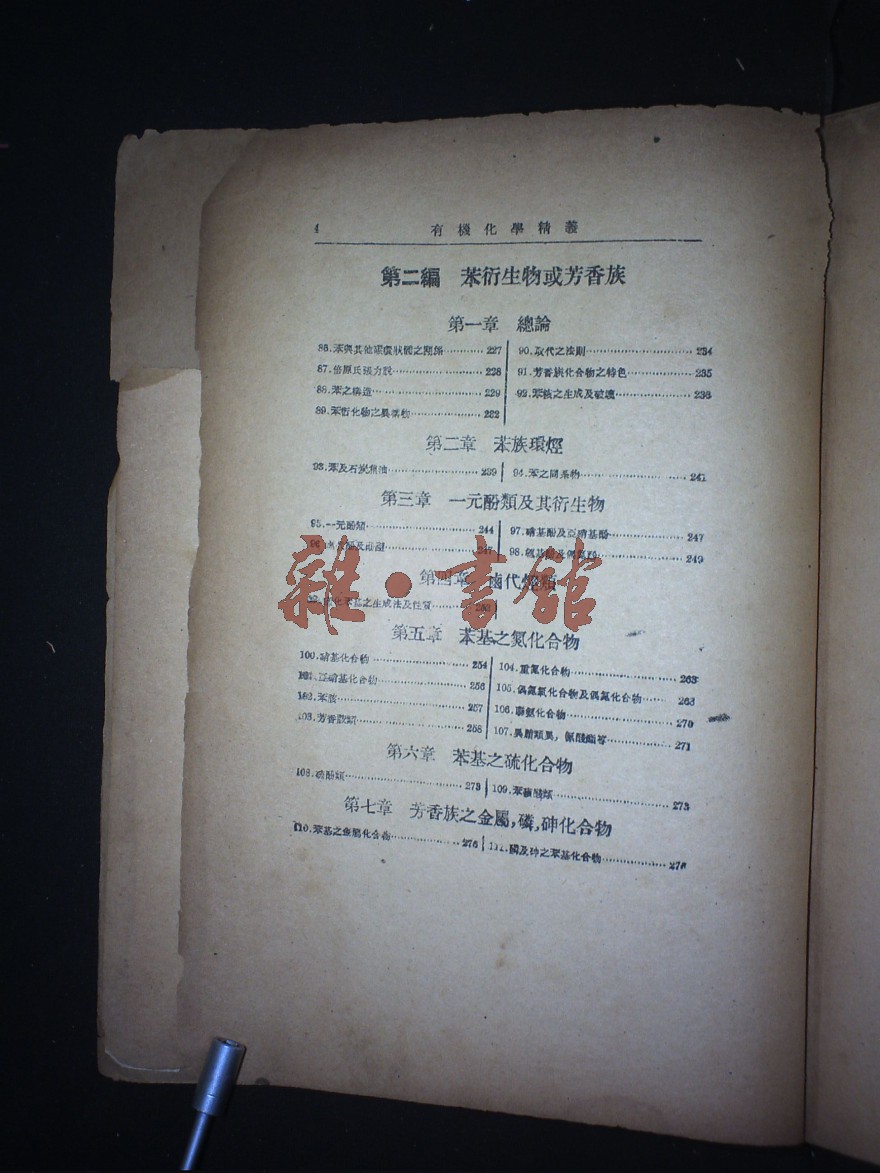 4 有機化學精義
第二編 苯衍生物或芳香族
第一章 總論
86.苯與其他環狀體之關係 227
87.倍雁氏張力說 228
88.苯之構造 229
89.苯衍化物之異構物 232
90.取代之法則 234
91.芳香族化合物之特色 235
92.苯核之生成及破壞 236
第二章 苯族環烴
93.苯及石炭焦油 239
94.苯之同系物 241
第三章 一元酚類及其衍生物
95.一元酚類 244
247
97.硝基酚及亞硝基酚 247
98. 249
第四章 鹵代烴類
之生成法及性質
第五章 苯基之氮化合物
100.硝基化合物 254
101.亞硝基化合物 256
102.苯胺 257
103.芳香胺類 258
104.重氮化合物 263
105.偶氮氧化合物及偶氮化合物 268
106.聯氨化合物 270
107. 271
第六章 苯基之硫化合物
108.硫酚類 273
109.苯磺酸類 273
第七章 芳香族之金屬,磷,砷化合物
110.苯基之金屬化合物 276
111.磷及砷之苯基化合物 276
雜·書館